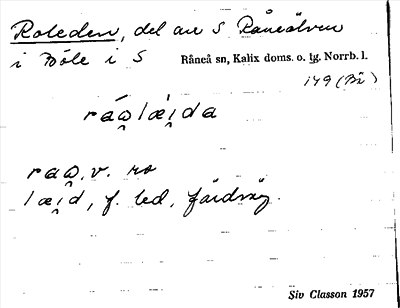 Roleden, del av S Råneälven
i Böle i S Råneå sn, Kalix doms. o. tg. Norrb. l.
149 (Bö)
ráo̯læ̀i̯da
rao̯, v. ro
læi̯d, f. led, färdväg.
Siv Classon 1957